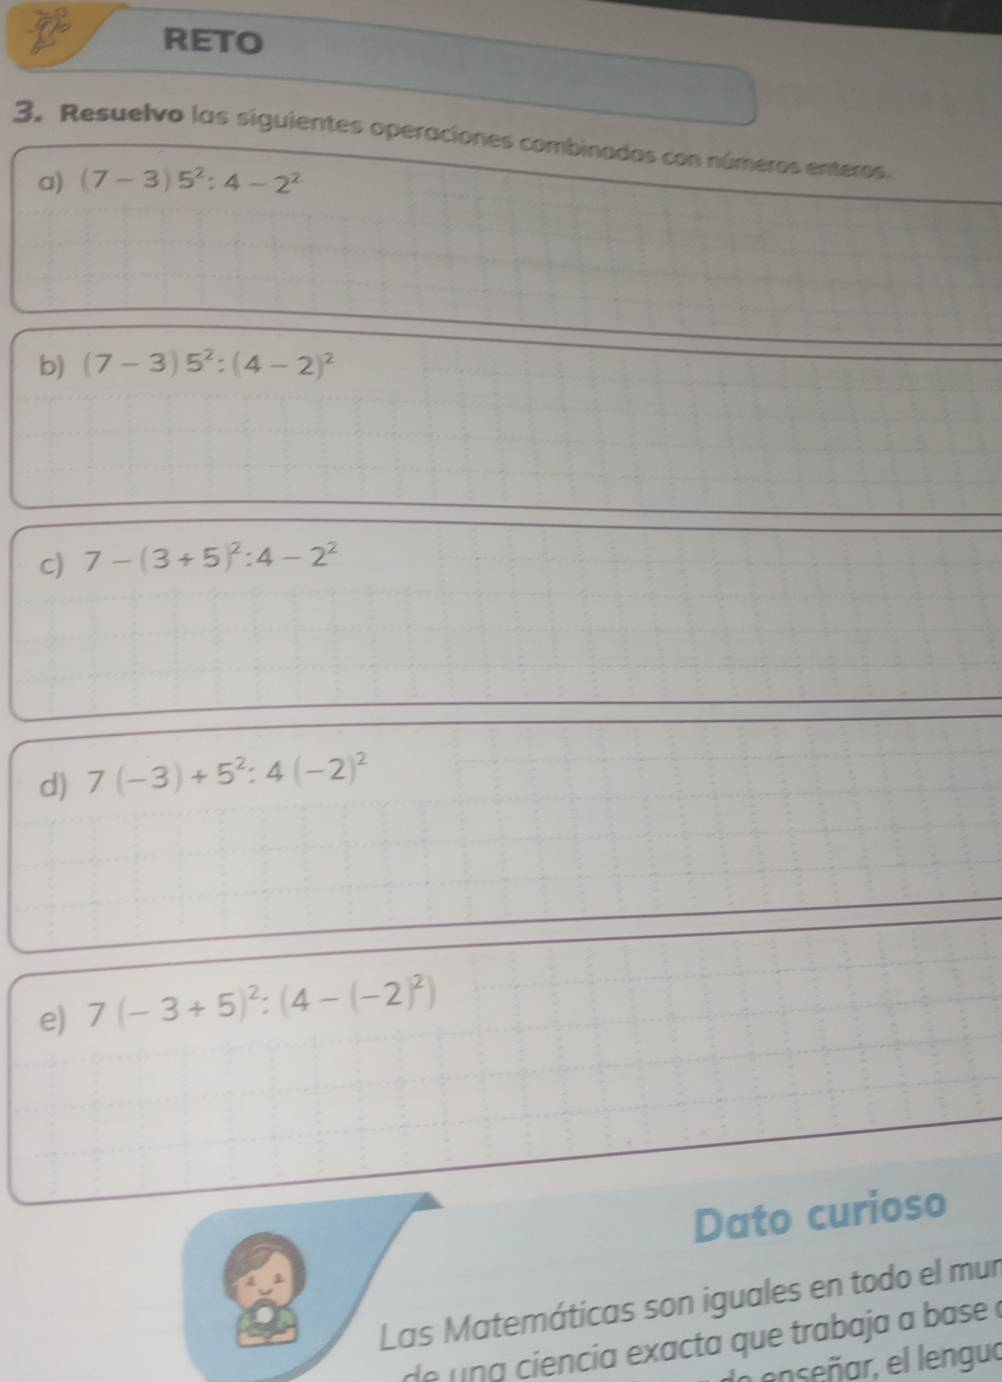 RETO
3. Resuelvo las siguientes operaciones combinadas con números enteros.
a) (7 − 3) 5² : 4 − 2²
b) (7 − 3) 5² : (4 − 2)²
c) 7 − (3 + 5)² : 4 − 2²
d) 7 (−3) + 5² : 4 (−2)²
e) 7 (− 3 + 5)² : (4 − (−2)²)
Dato curioso
Las Matemáticas son iguales en todo el
de una ciencia exacta que trabaja a base
enseñar, el